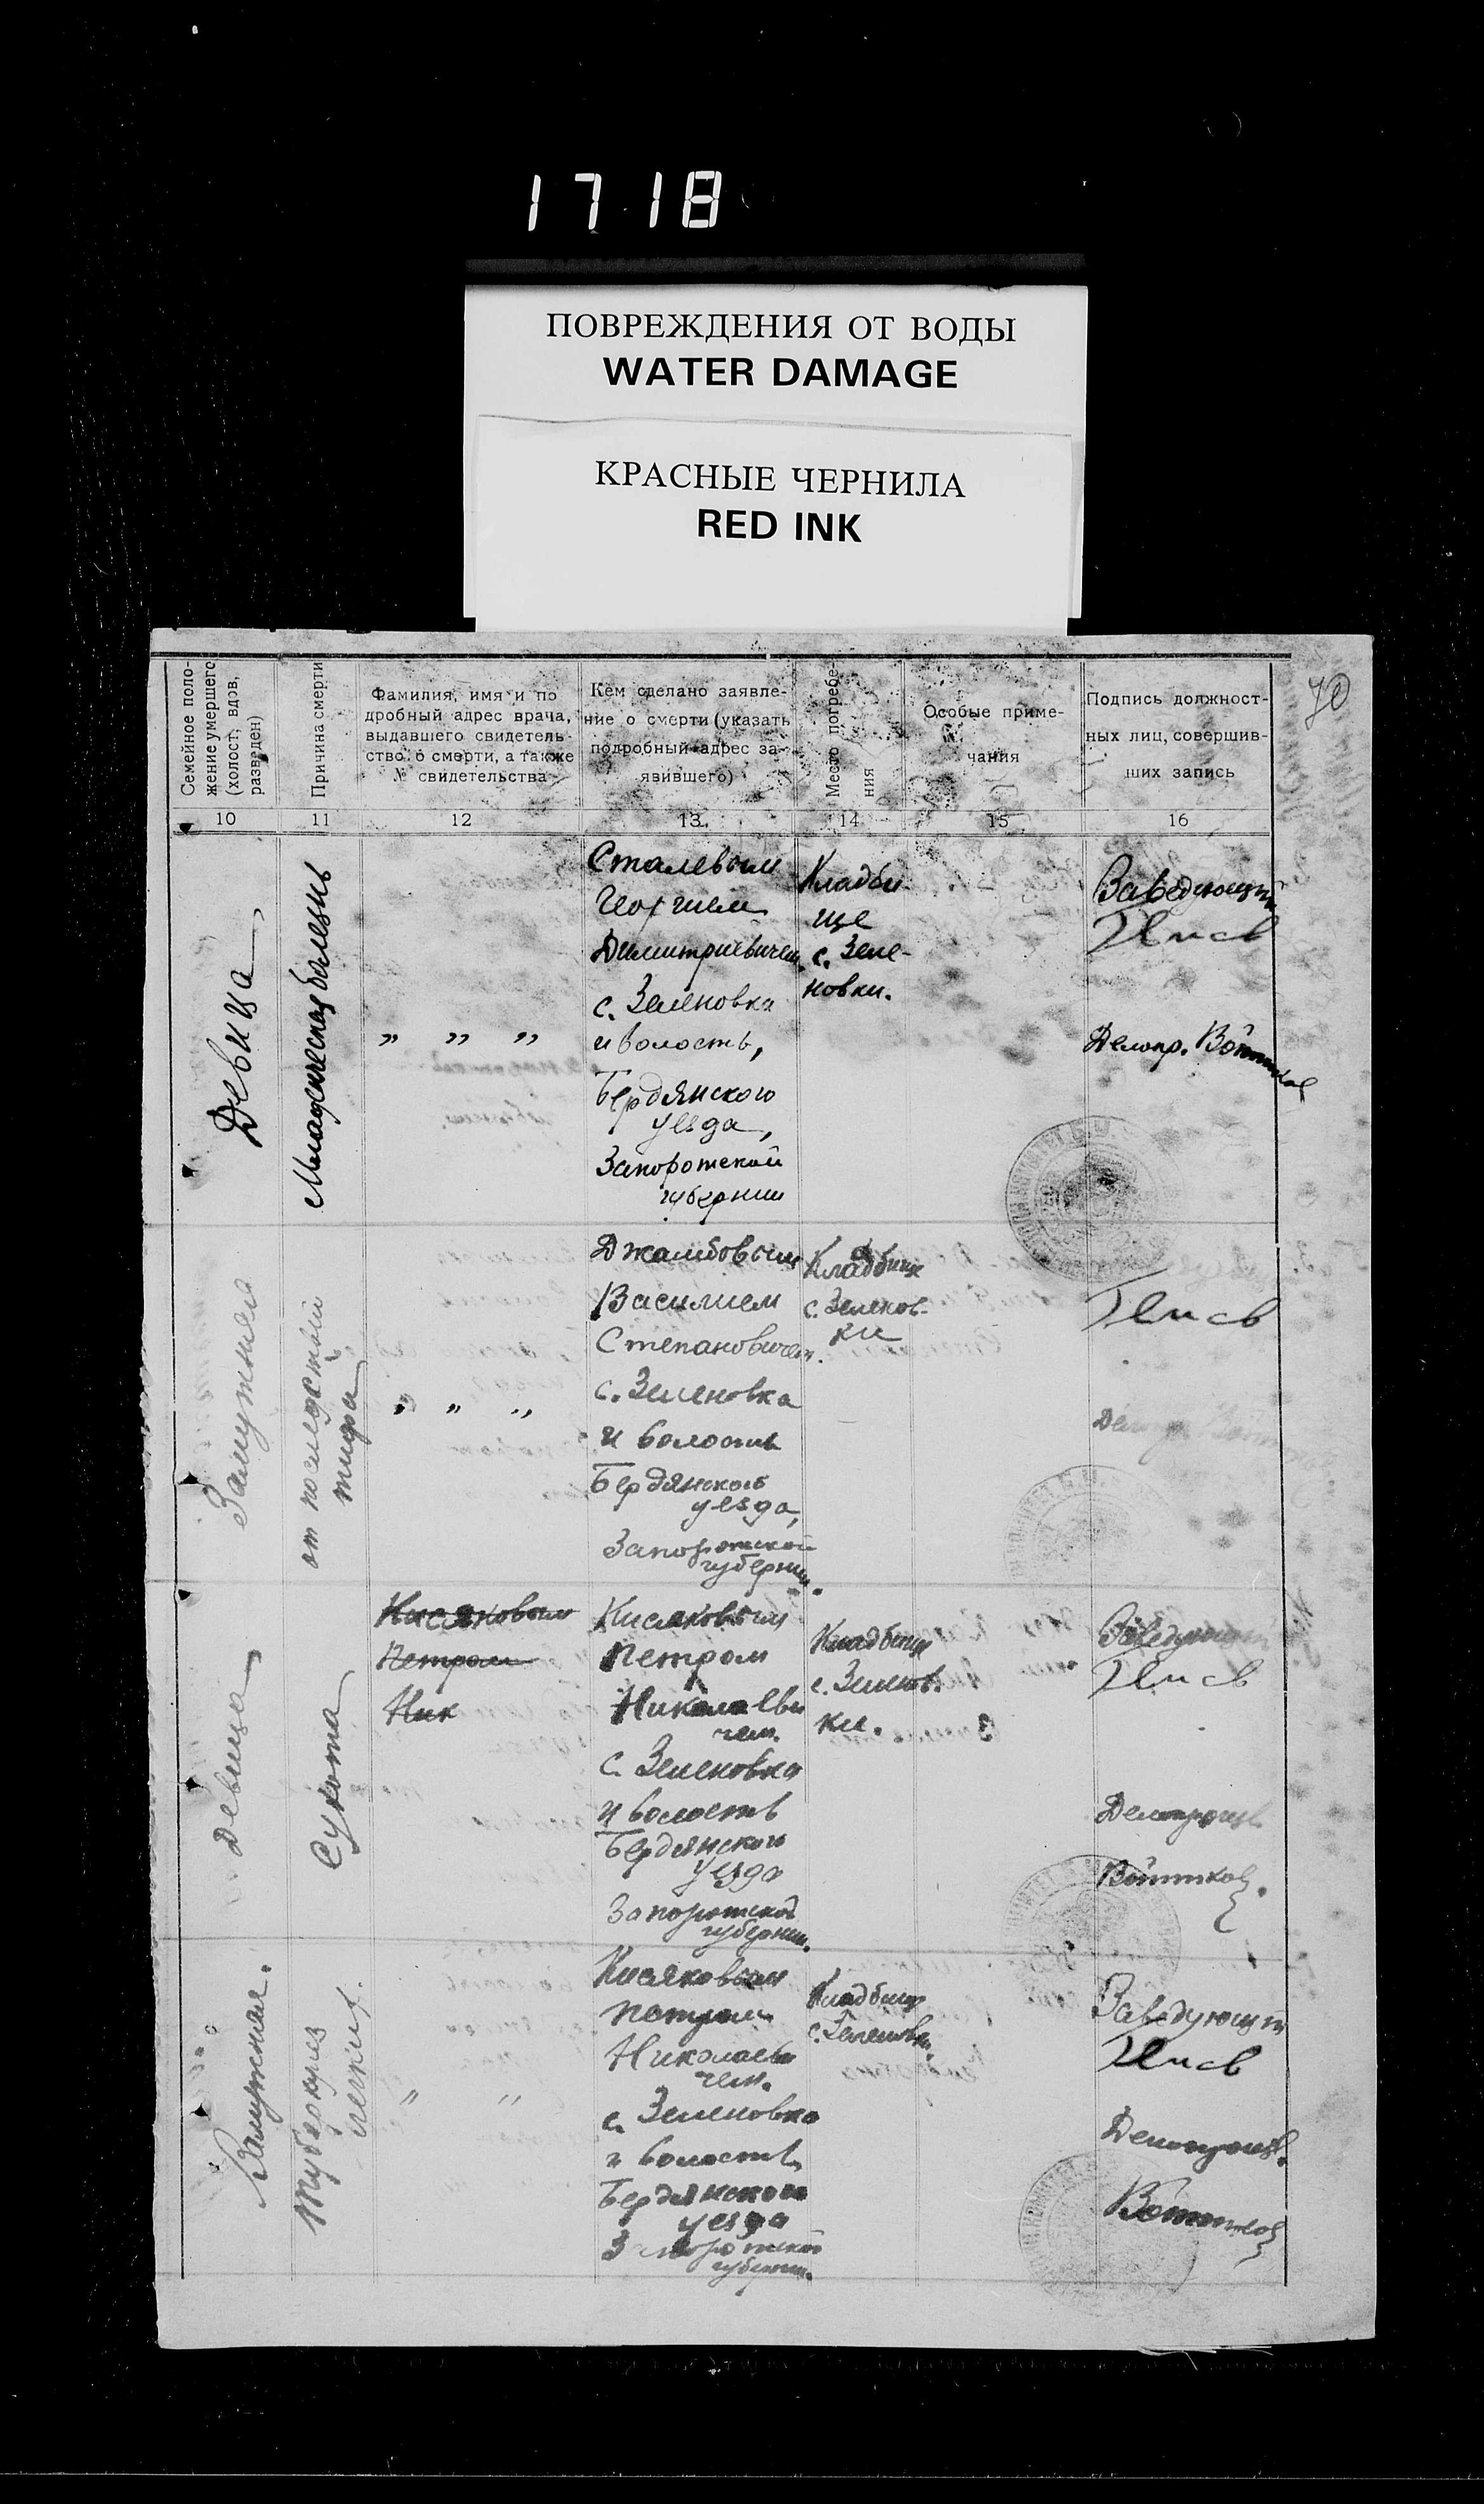 1718
ПОВРЕЖДЕНИЯ ОТ ВОДЫ
WATER DAMAGE
КРАСНЫЕ ЧЕРНИЛА
RED INK
70
Семейное поло-
жение умершего
(холост, вдов,
разведен)
Причина смерти
Фамилия, имя и по
дробный адрес врача,
выдавшего свидетель-
ство о смерти, а также
№ свидетельства
Кем сделано заявле-
ние о смерти (указать
подробный адрес за-
явившего)
Место погребе-
ния
Особые приме-
чания
Подпись должност-
ных лиц, совершив-
ших запись
10 11 12 13 14 15 16
Девица
Младенческая болезнь
„ „ „
Сталевым
Георгием
Димитриевичем
с. Зеленовка
и волость,
Бердянского
уезда,
Запорожской
губернии
Кладби
ще
с. Зеле-
новки.
Заведующий
Делопр.
Замужняя
от последствий
тифа
„ „ „
Джамбовым
Василием
Степановичем.
с. Зеленовка
и волость
Бердянского
уезда,
Запорожской
губернии.
Кладбище
с. Зеленов-
ки
Девица
Сухота
Кисяковым
Петром
Ник
Кисяковым
Петром
Николаеви
чем.
с. Зеленовка
и волость
Бердянского
уезда
Запорожской
губернии.
Кладбище
с. Зеленов.
ки.
Заведующий
Замужная.
Туберкулез
легких.
„ „
Кисяковым
Петром
Николаеви
чем.
с. Зеленовка
и волость
Бердянского
уезда
Запорожской
губернии.
Кладбище
с. Зеленовки.
Заведующий